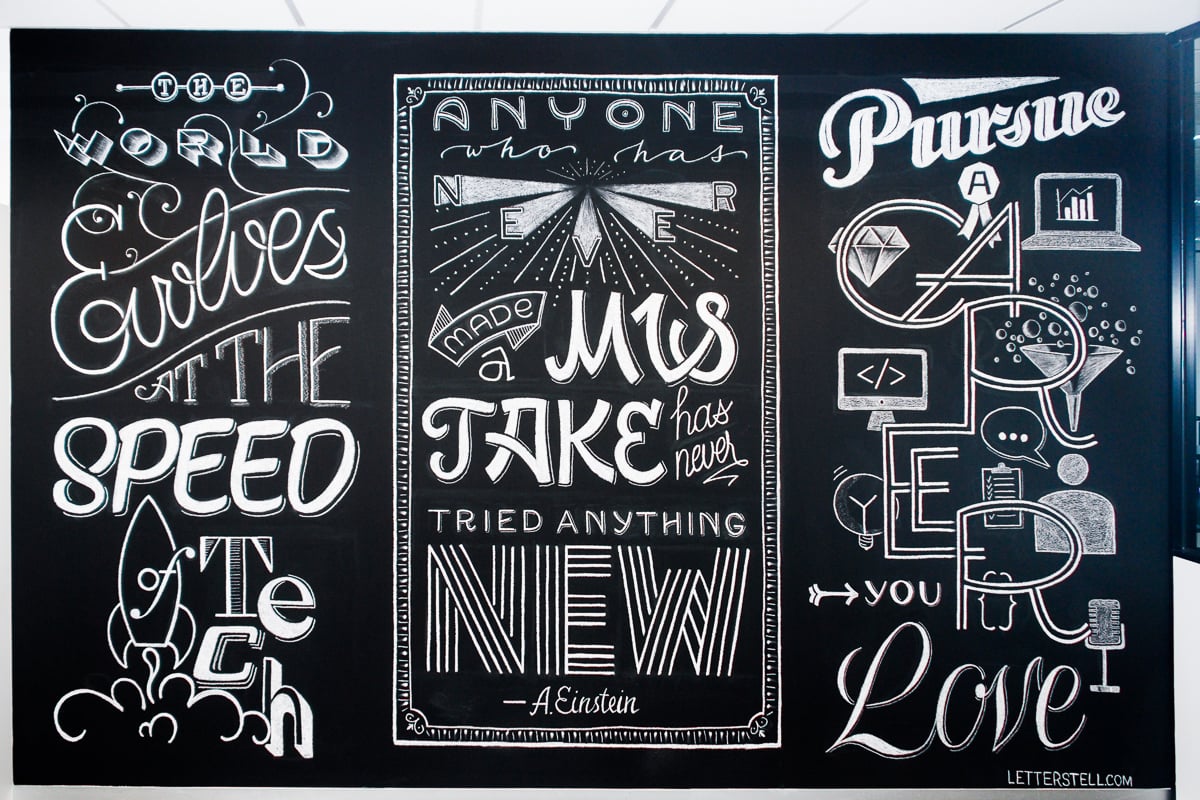 THE
WORLD
Evolves
AT THE
SPEED
of Tech
ANYONE
who has
NEVER
MADE a MIS
TAKE has never
TRIED ANYTHING
NEW
— A. Einstein
Pursue
A
CAREER
</>
{ }
YOU
Love
LETTERSTELL.COM